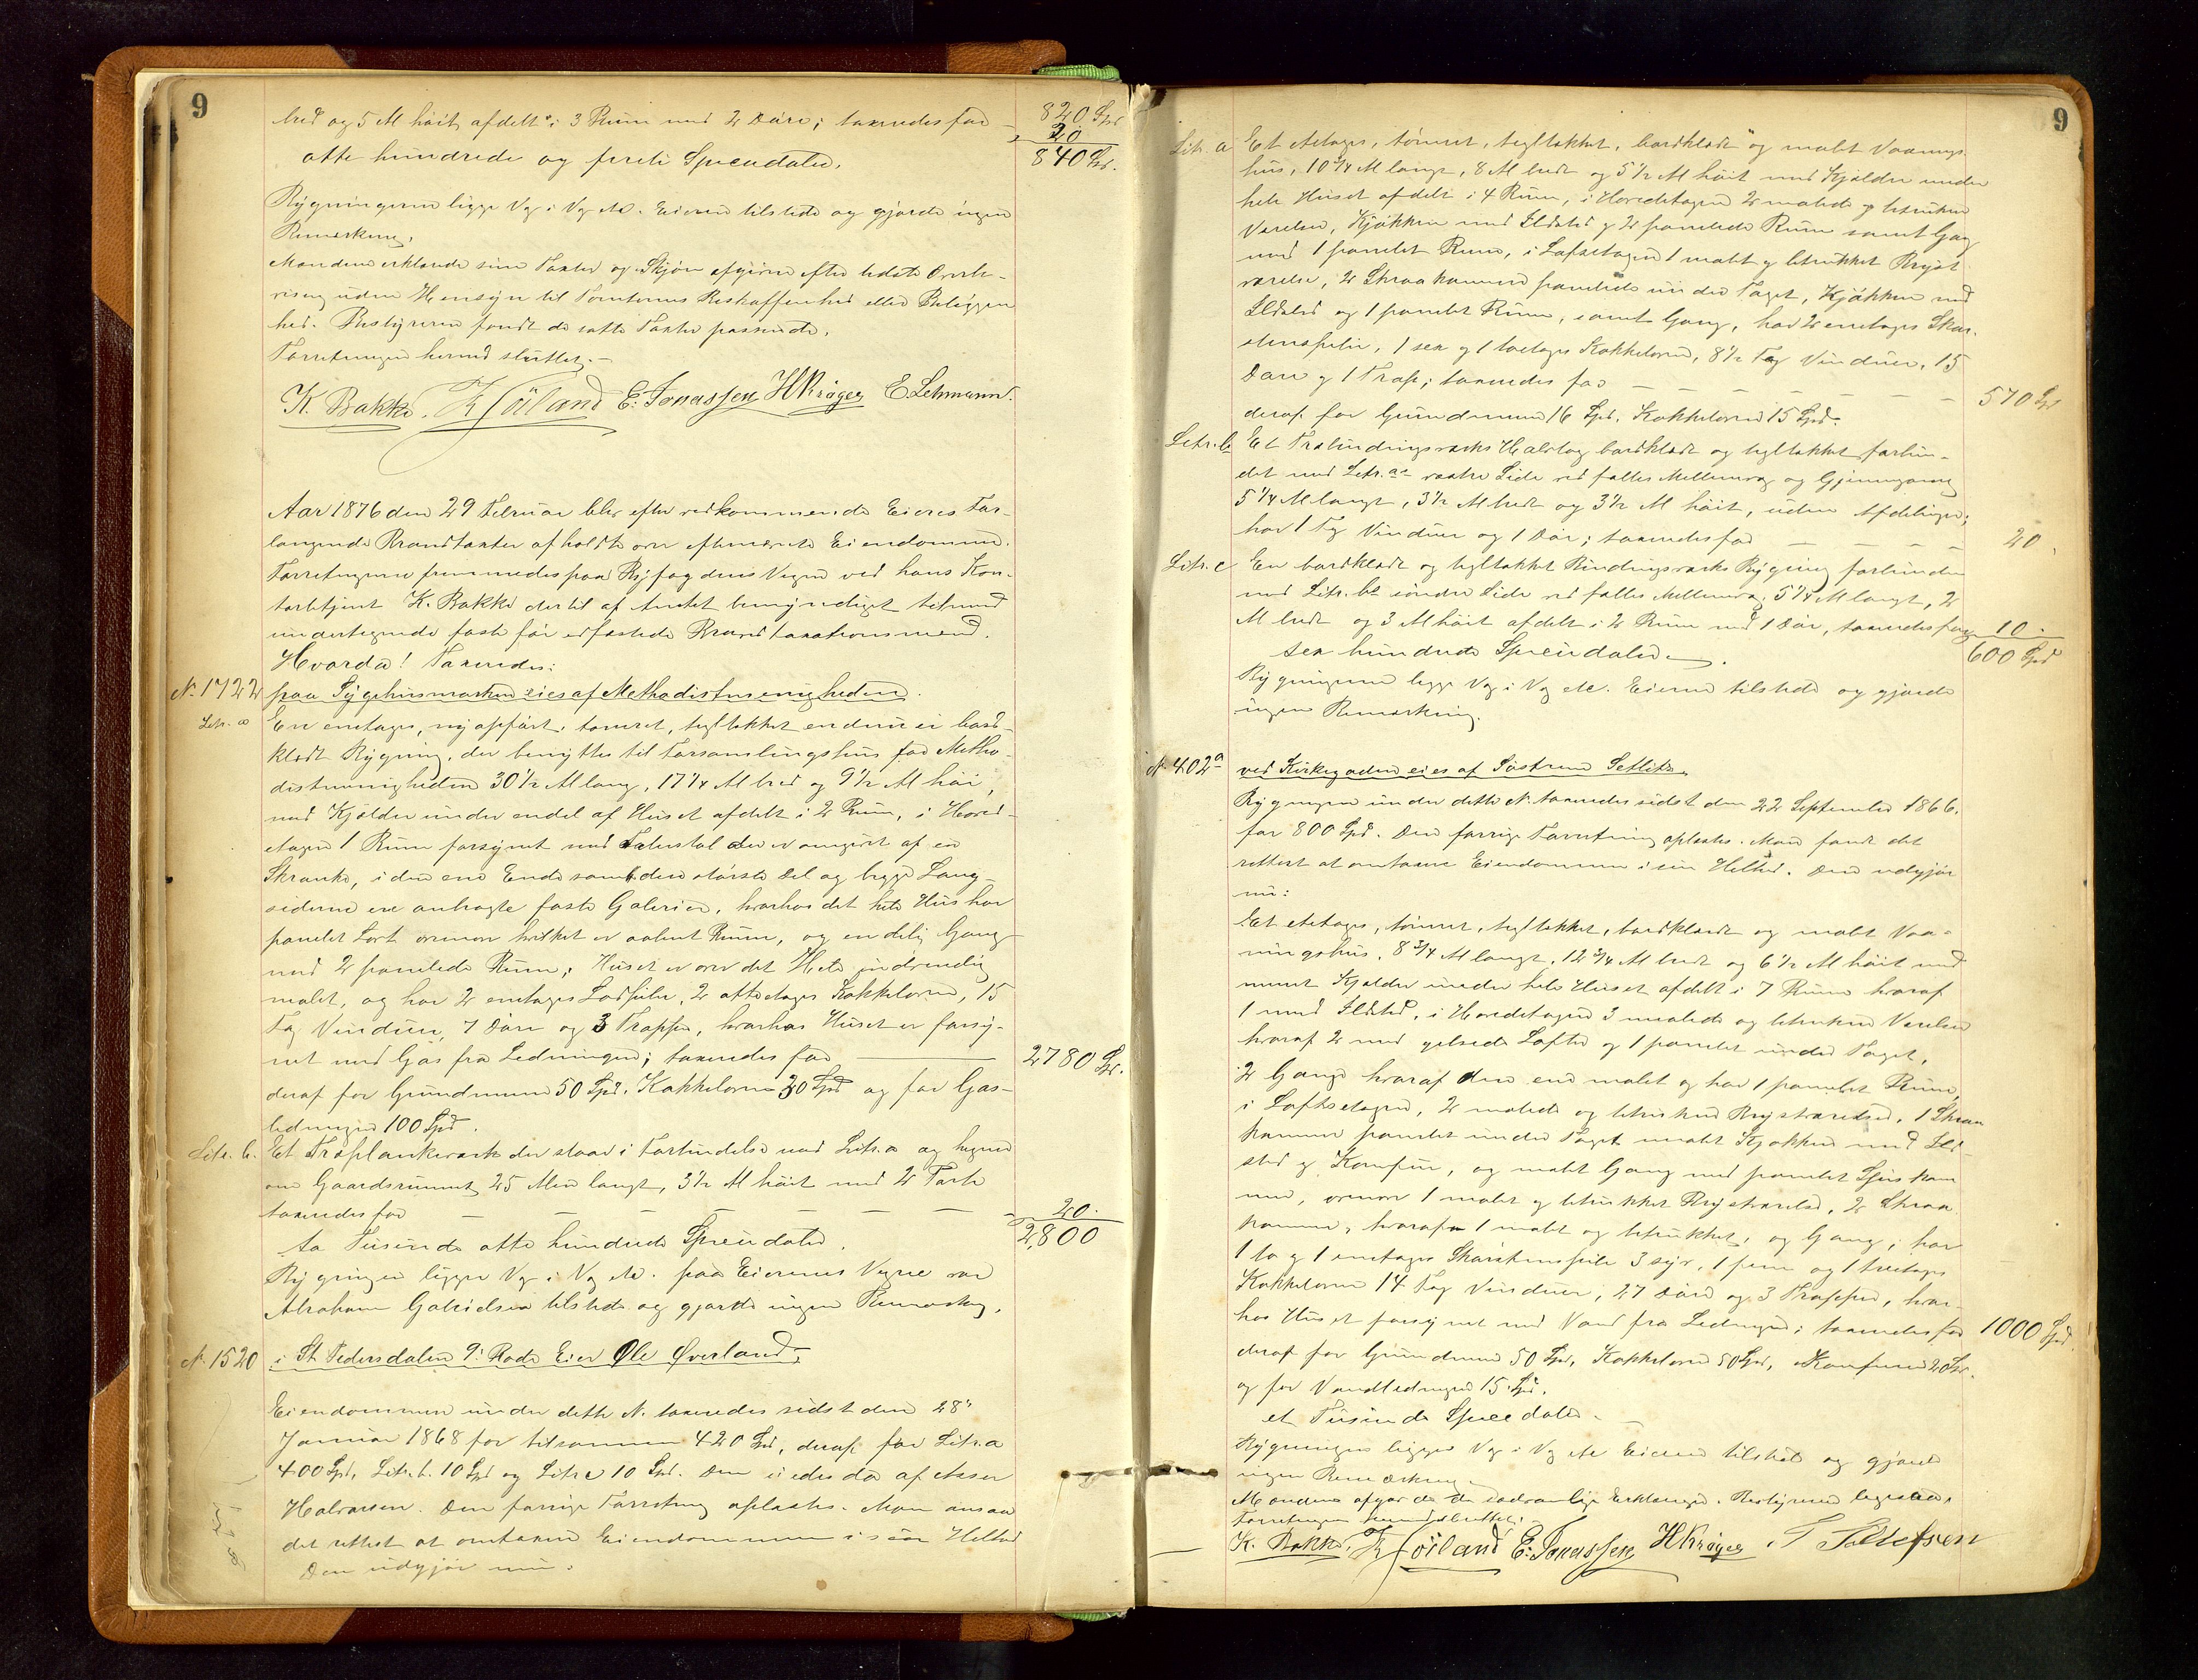 9
bred og 5 Al höit, afdelt i 3 Rum med 2 Döre; taxeredes for
820 Spd
20
otte hundrede og förti Speciedaler.
840 Spd.
Bygningerne ligge Vg. i Vg etc. Eieren tilstede og gjorde ingen
Bemærkning.
Mændene erklærede sine Taxter og Skjön afgivne efter bedste Overbe-
visning uden Hensyn til Tomternes Beskaffenhed eller Beliggen
hed. Bestyreren fandt de satte Taxter passende.
Forretningen hermed sluttet.
K. Bakke. E. Jonassen H Kröger E Lehmann.
Aar 1876 den 29 Februar blev efter vedkommende Eieres For-
langende Brandtaxter afholdte over eftermærkte Eiendomme.
Forretningerne fremmedes paa Byfogdens Vegne ved hans Kon-
torbetjent K. Bakke dertil af Amtet bemyndiget tilmed
undertegnede faste för edfæstede Brandtaxationsmænd.
Hvorda! Taxeredes:
N. 1722 paa Sygehusmarken eies af Methodistmenigheden.
Litr. a En enetages, nyopfört, tömret, tegltækket endnu ei bord-
klædt Bygning, der benyttes til Forsamlingshus for Metho-
distmenigheden 30½ Al lang, 17¼ Al bred og 9½ Al höi,
med Kjælder under endel af Huset afdelt i 2 Rum, i Hoved-
etagen 1 Rum forsynet med Talerstol der er omgivt af en
Skranke, i den ene Ende samt den störste Del og begge Lang-
siderne ere anbragte faste Galerier, hvorhos det hele Hus har
panelet Loft ovenover hvilket er aabent Rum, og endelig Gang
med 2 panelede Rum; Huset er over det Hele indvendig
malet, og har 2 enetages Lodpiber, 2 otteetages Kakkelovne, 15
Fag Vinduer, 7 Döre og 3 Trapper, hvorhos Huset er forsy-
net med Gas fra Ledningen; taxeredes for
2780 Spd.
deraf for Grundmuren 50 Spd. Kakkelovne 30 Spd og for Gas-
ledningen 100 Spd.
Litr. b. Et Træplankeværk der staar i Forbindelse med Litr. a og hegner
om Gaardsrummet, 25 Alen langt, 3½ Al höit med 2 Porte
taxeredes for
20.
to Tusinde otte hundrede Speciedaler.
2,800
Bygningen ligger Vg. i Vg etc. paa Eierenes Vegne var
Abraham Gabrielsen tilstede og gjorde ingen Bemærkng.
N. 1520 i St Pedersdalen 9. Rode Eier Ole Överland.
Eiendommen under dette N. taxeredes sidst den 28.
Januar 1868 for tilsammen 420 Spd, deraf for Litr. a
400 Spd, Litr. b. 10 Spd og Litr c 10 Spd. Den eiedes da af Asser
Halvorsen. Den forrige Forretning oplæstes. Man ansaa
det rettest at omtaxere Eiendommen i sin Helhed
Den udgjör nu:
9
Litr. a Et etetages, tömret, tegltækket, bordklædt og malet Vaanings
hus, 10¼ Al langt, 8 Al bredt og 5½ Al höit med Kjælder under
hele Huset afdelt i 4 Rum, i Hovedetagen 2 malede og betrukne
Værelser, Kjökken med Ildsted og 2 panelede Rum samt Gang
med 1 panelet Rum, i Loftsetagen 1 malet og betrukket Kvist
værelse, 2 Skraakammere panelede under Taget, Kjökken med
Ildsted og 1 panelet Rum, samt Gang, har 2 enetages Skor-
stenspiber, 1 sex og 1 toetages Kakkelovn, 8½ Fag Vinduer, 15
Döre og 1 Trap; taxeredes for
570 Spd
deraf for Grundmuren 16 Spd. Kakkelovne 15 Spd.
Litr. b. Et Træbindingsværks Halvtag bordklædt og tegltækket forbun-
det med Litr. as vestre Side ved fælles Mellemvæg og Gjennemgang
5¼ Al langt, 3½ Al bredt og 3½ Al höit, uden Afdelinger;
har 1 Fag Vinduer og 1 Dör; taxeredes for
20.
Litr. c En bordklædt og tegltækket Bindingsværks Bygning forbunden
med Litr. bs söndre Side ved fælles Mellemvæg, 5¼ Al langt, 2
Al bredt og 3 Al höit afdelt i 2 Rum med 1 Dör, taxeredes for
10.
sex hundrede Speciedaler.
600 Spd
Bygningerne ligge Vg. i Vg etc. Eieren tilstede og gjorde
ingen Bemærkning.
N. 402a ved Kirkegaden eies af Söstrene Setlitz.
Bygningen under dette N. taxeredes sidst den 22 September 1866.
for 800 Spd. Den forrige Forretning oplæstes. Man fandt det
rettest at omtaxere Eiendommen i sin Helhed. Den udgjör
nu:
Et etetages, tömret, tegltækket, bordklædt og malet Vaa-
ningshus, 8¾ Al langt, 12¾ Al bredt og 6½ Al höit med
muret Kjælder under hele Huset afdelt i 7 Rum hvoraf
1 med Ildsted, i Hovedetagen 3 malede og betrukne Værelser
hvoraf 2 med gibsede Lofter og 1 panelet under Taget,
2 Gange hvoraf den ene malet og har 1 panelet Rum,
i Loftsetagen, 2 malede og betrukne Kvistværelser, 1 Skraa
kammer panelet under Taget malet Kjökken med Ild-
sted og Komfur, og malet Gang med panelet Spiskam
mer, ovenover 1 malet og betrukket Kvistværelse, 2 Skraa
kammere, hvoraf 1 malet og betrukket, og Gang; har
1 to og 1 enetages Skorstenspibe 3 syv, 1 fem og 1 treetages
Kakkelovne 14 Fag Vinduer, 27 Döre og 3 Trapper, hvor-
hos Huset forsynet med Vand fra Ledningen; taxeredes for
1000 Spd.
deraf for Grundmuren 50 Spd, Kakkelovne 50 Spd, Komfuren 20 Spd.
og for Vandledningen 15 Spd.
et Tusinde Speciedaler.
Bygningen ligger Vg. i Vg etc Eieren tilsted og gjorde
ingen Bemærkning.
Mændene afgav de sædvanlige Erklæringer. Bestyreren ligesaa.
Forretningen hermed sluttet.
K. Bakke. E. Jonassen H Kröger